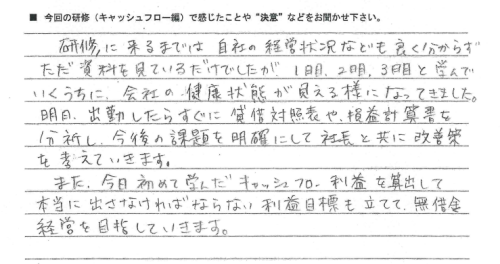 ■ 今回の研修（キャッシュフロー編）で感じたことや“決意”などをお聞かせ下さい。
研修に来るまでは自社の経営状況なども良く分からず
ただ資料を見ているだけでしたが、1日目、2日目、3日目と学んで
いくうちに、会社の健康状態が見える様になってきました。
明日、出勤したらすぐに貸借対照表や、損益計算書を
分析し、今後の課題を明確にして社長と共に改善策
を考えていきます。
また、今日初めて学んだキャッシュフロー利益を算出して
本当に出さなければならない利益目標も立てて、無借金
経営を目指していきます。